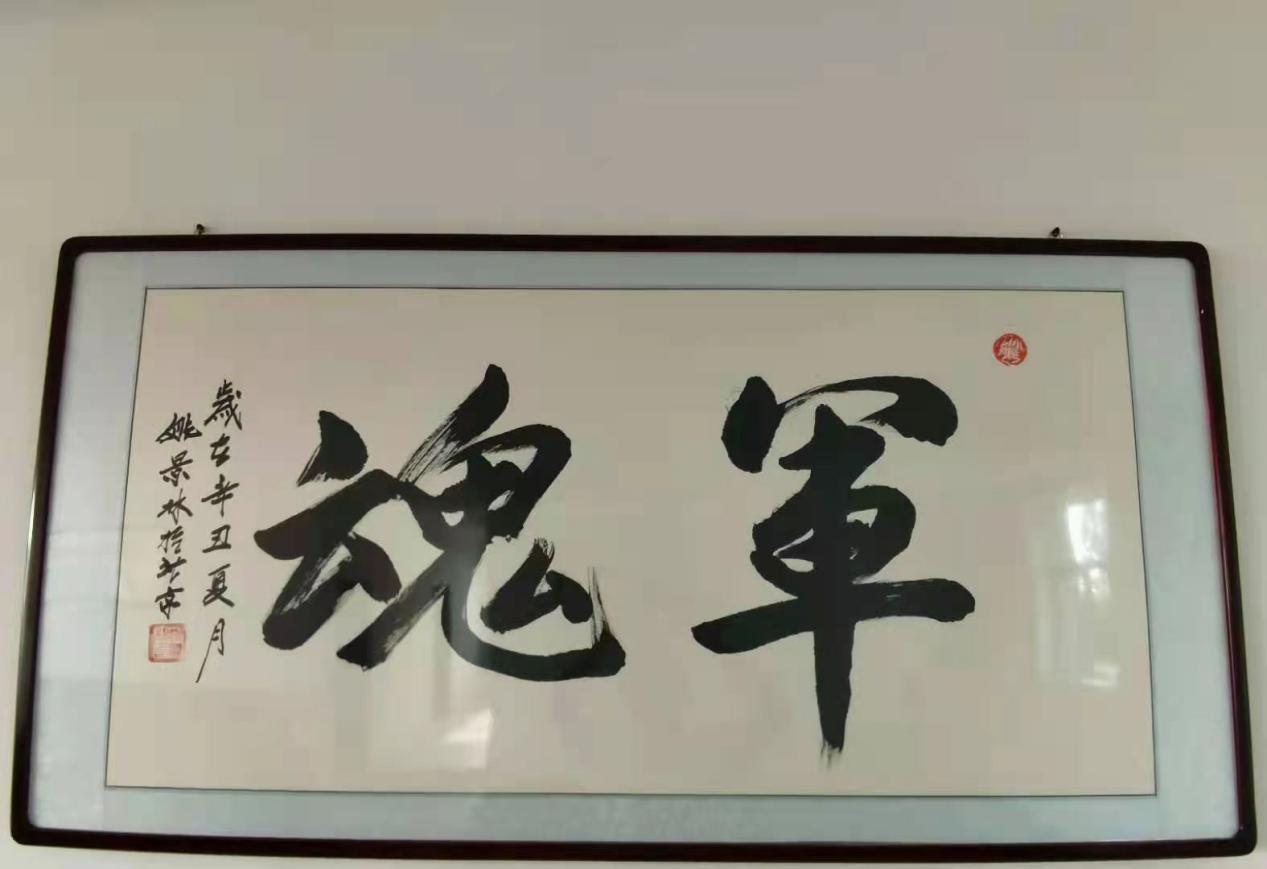 軍魂
歲在辛丑夏月
姚景林於北京